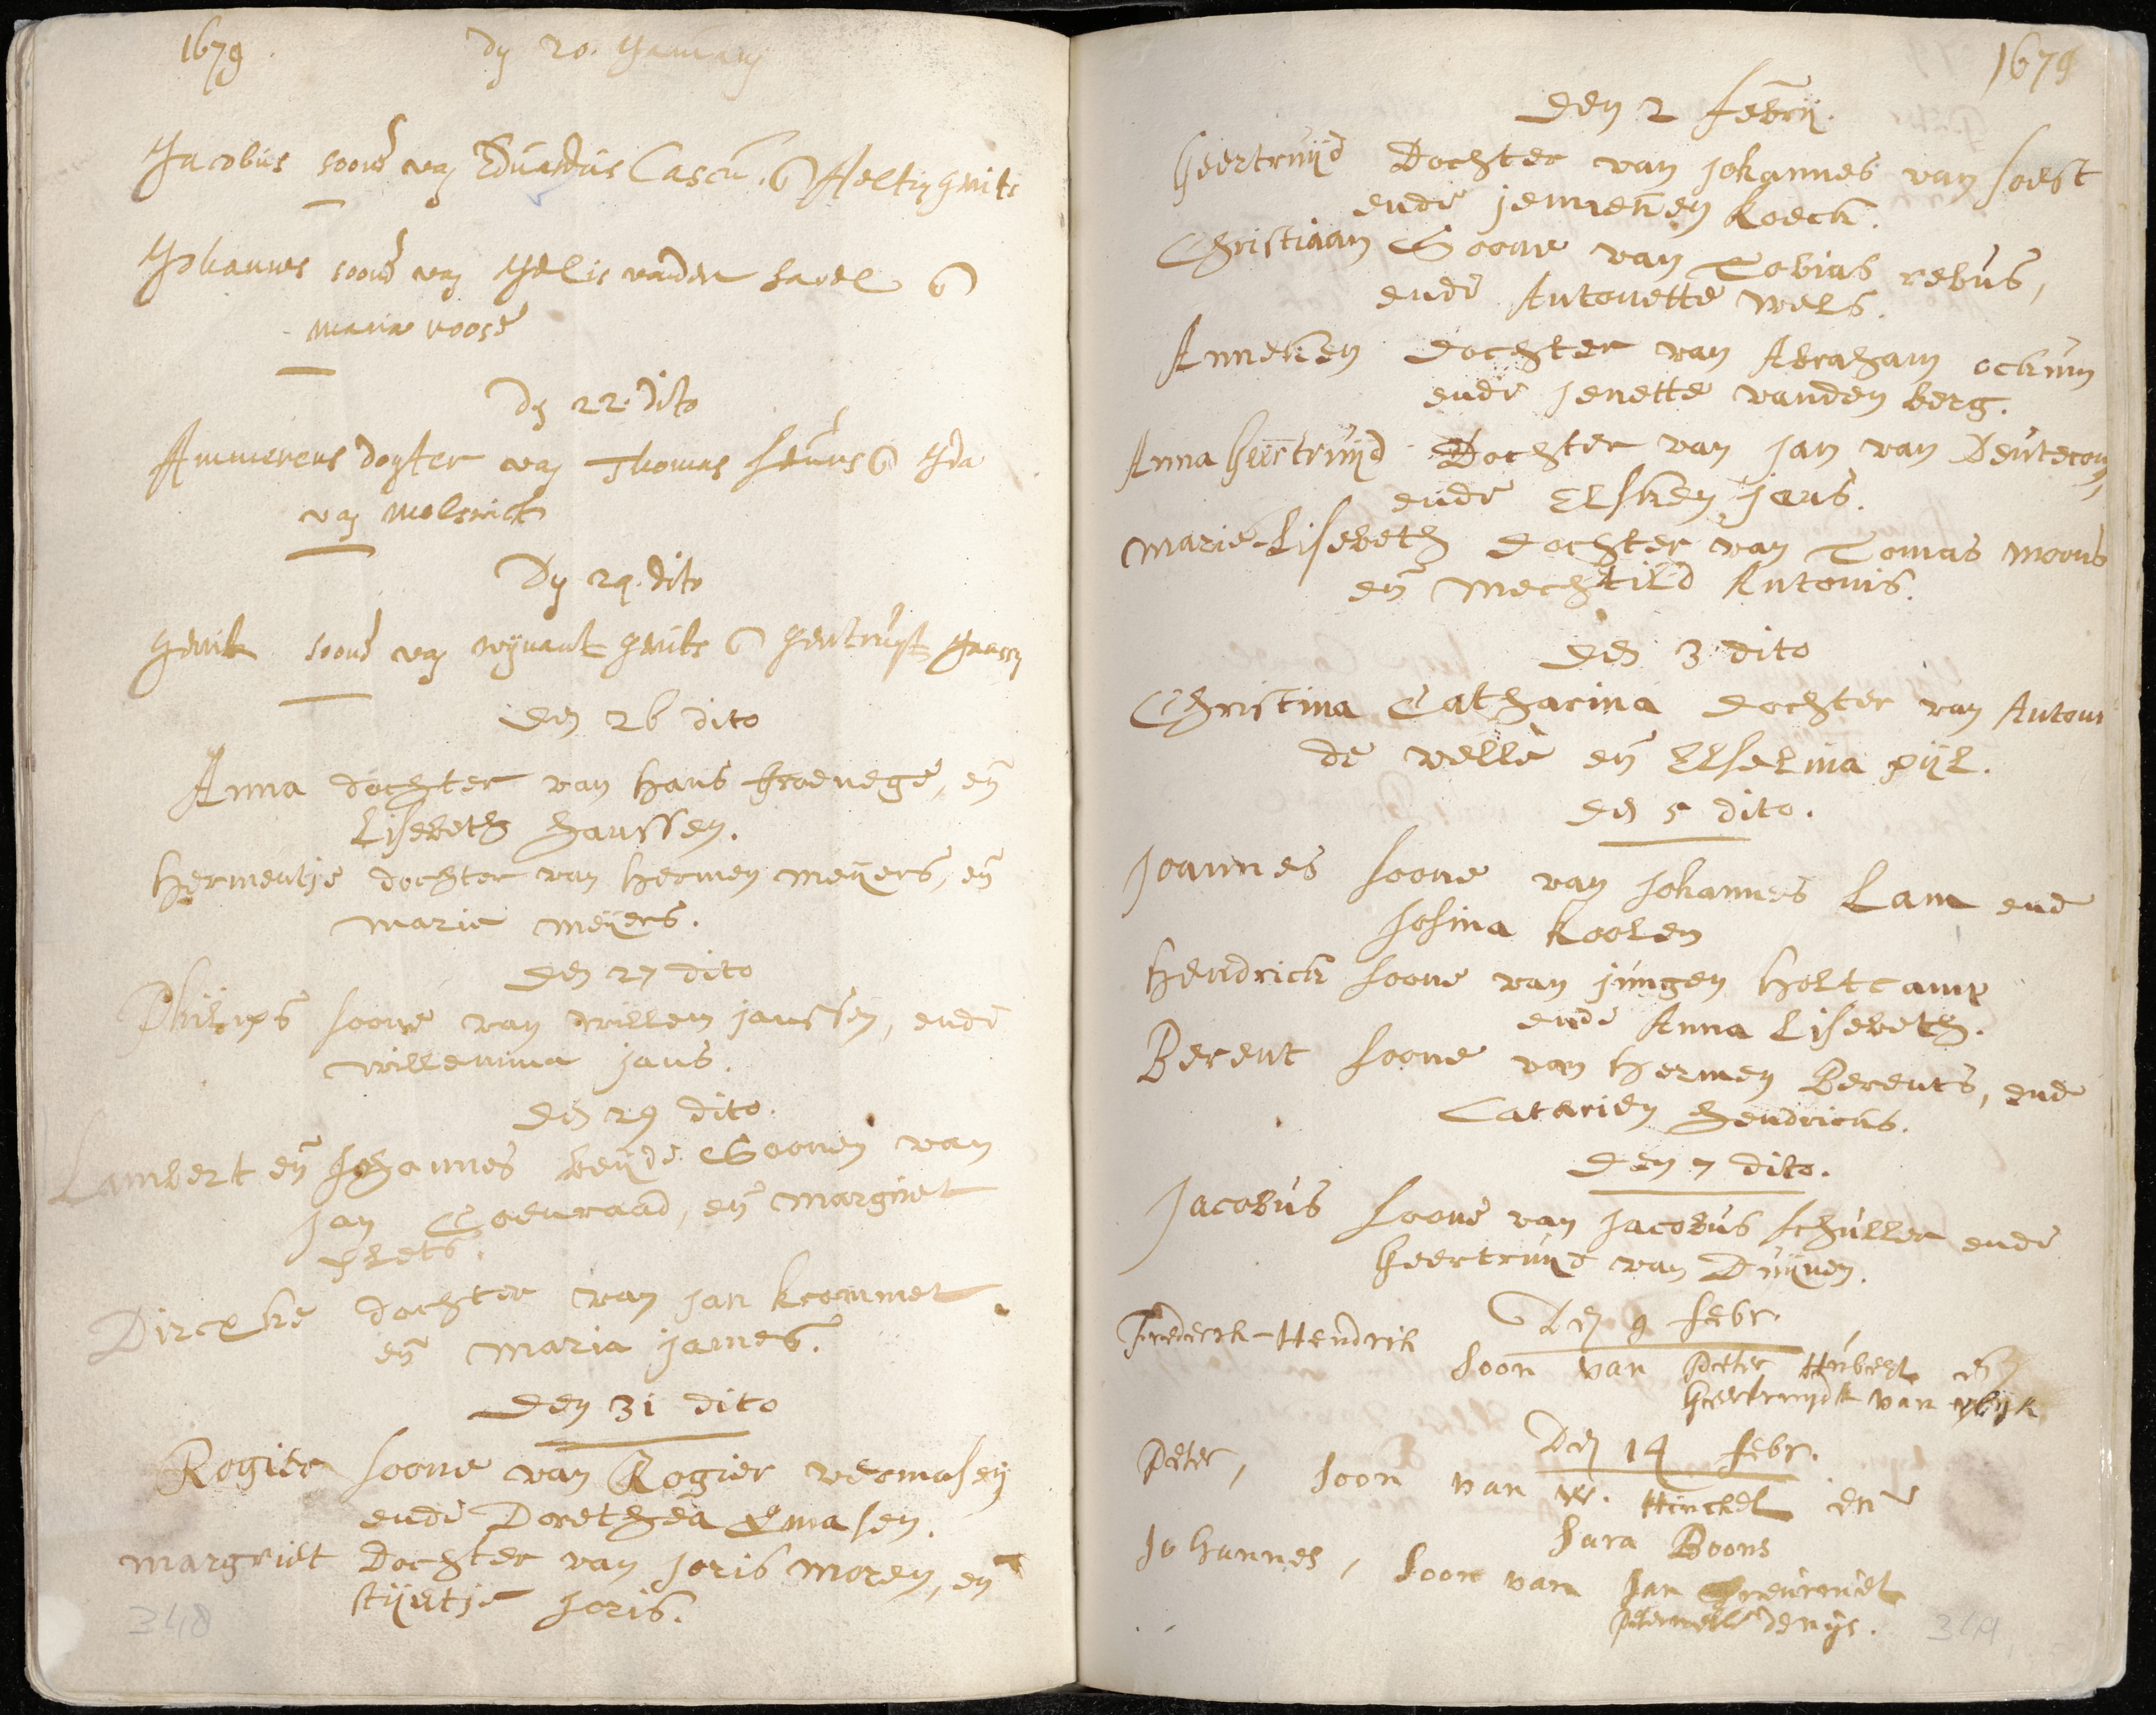 1679
dy 20. January
Jacobus soone van Eduardus Cascu. en Aeltien
Johannes soone van Jelis vanden havel en
maria roose
Dy 22. dito
Ammerens doghter van Thomas en Ida
van
Dy 24. dito
Gerrit soone van wynant Gerrits en Geertruyt
den 26 dito
Anna dochter van hans en
Lisebeth Janssen.
Hermentje dochter van hermen meyers, en
marie meyers.
den 27 dito
Philips soone van willem janssen, ende
willemina jans.
den 29 dito.
Lambert en Johannes beyde Soonen van
Jan Coenraad, en margriet
Dircxke dochter van jan krommet
en maria james.
Den 31 dito
Rogier soone van Rogier vermasen
ende Dorethea
margriet Dochter van Joris moren, en
stijntje Joris.
348
1679
Den 2 febrij.
Geertruijd Dochter van johannes van soest
ende jenneken koeck.
Christiaan Soone van Tobias rebus,
ende Antonette wels.
Anneken dochter van Abraham ockum
ende Jenette vanden berg.
Anna Geertruijd Dochter van jan van Deutecom,
ende Elsken jans.
Marie-Lisebeth dochter van Tomas moons
en Mechtild Antonis.
den 3 dito
Christina Catharina dochter van Antoni
de velle en Elselina pijl.
den 5 dito.
Joannes soone van johannes Lam ende
Josina koolen
Hendrick soone van jungen holtcamp
ende Anna Lisebeth.
Berent soone van hermen Berents, ende
Catarien hendricks.
Den 7 dito.
Jacobus soone van jacobus schuller ende
Geertruyd van Duijven.
Den 9 febr.
Frederik-Hendrik soon van Peter Hubert en
Geertruydt van
Den 14 febr.
Peter, soon van W. Hinckel en
Sara Boons
Johannes, soon van Jan
Peternelle denijs.
349